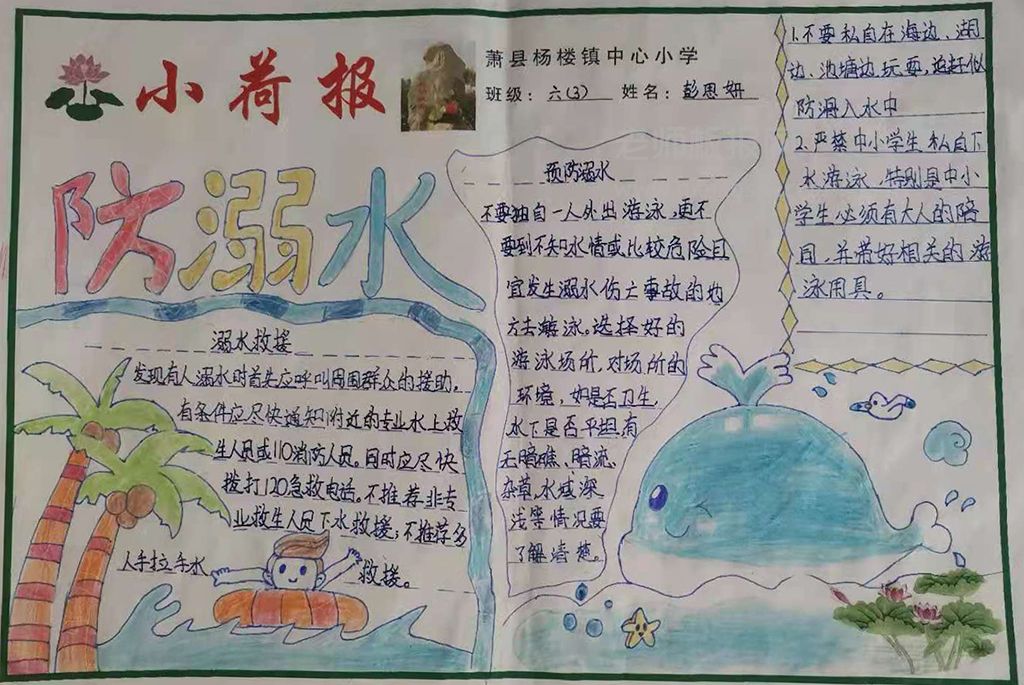 小荷报
萧县杨楼镇中心小学
班级：六(3) 姓名：彭思妍
防溺水
溺水救援
发现有人溺水时首先应呼叫周围群众的援助，
有条件应尽快通知附近的专业水上救
生人员或110消防人员。同时应尽快
拨打120急救电话。不推荐非专
业救生人员下水救援；不推荐多
人手拉手水
救援。
预防溺水
不要独自一人外出游泳，更不
要到不知水情或比较危险且
宜发生溺水伤亡事故的地
方去游泳。选择好的
游泳场所，对场所的
环境，如是否卫生，
水下是否平坦有
无暗礁、暗流、
杂草，水域深
浅等情况要
了解清楚。
1.不要私自在海边、湖
边、池塘边玩耍，追赶似
防滑入水中
2.严禁中小学生私自下
水游泳，特别是中小
学生必须有大人的陪
同，并带好相关的游
泳用具。